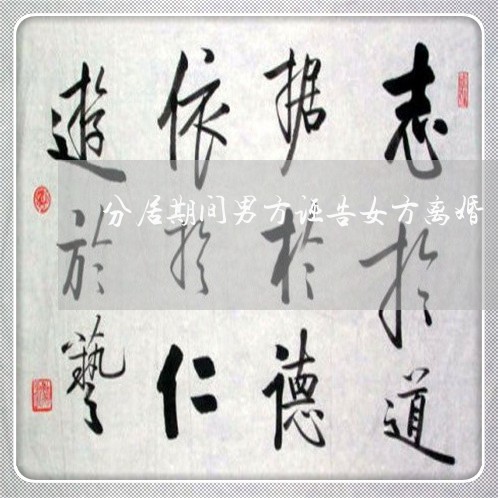 志扵道
据扵德
依扵仁
遊於藝
分居期间男方诬告女方离婚